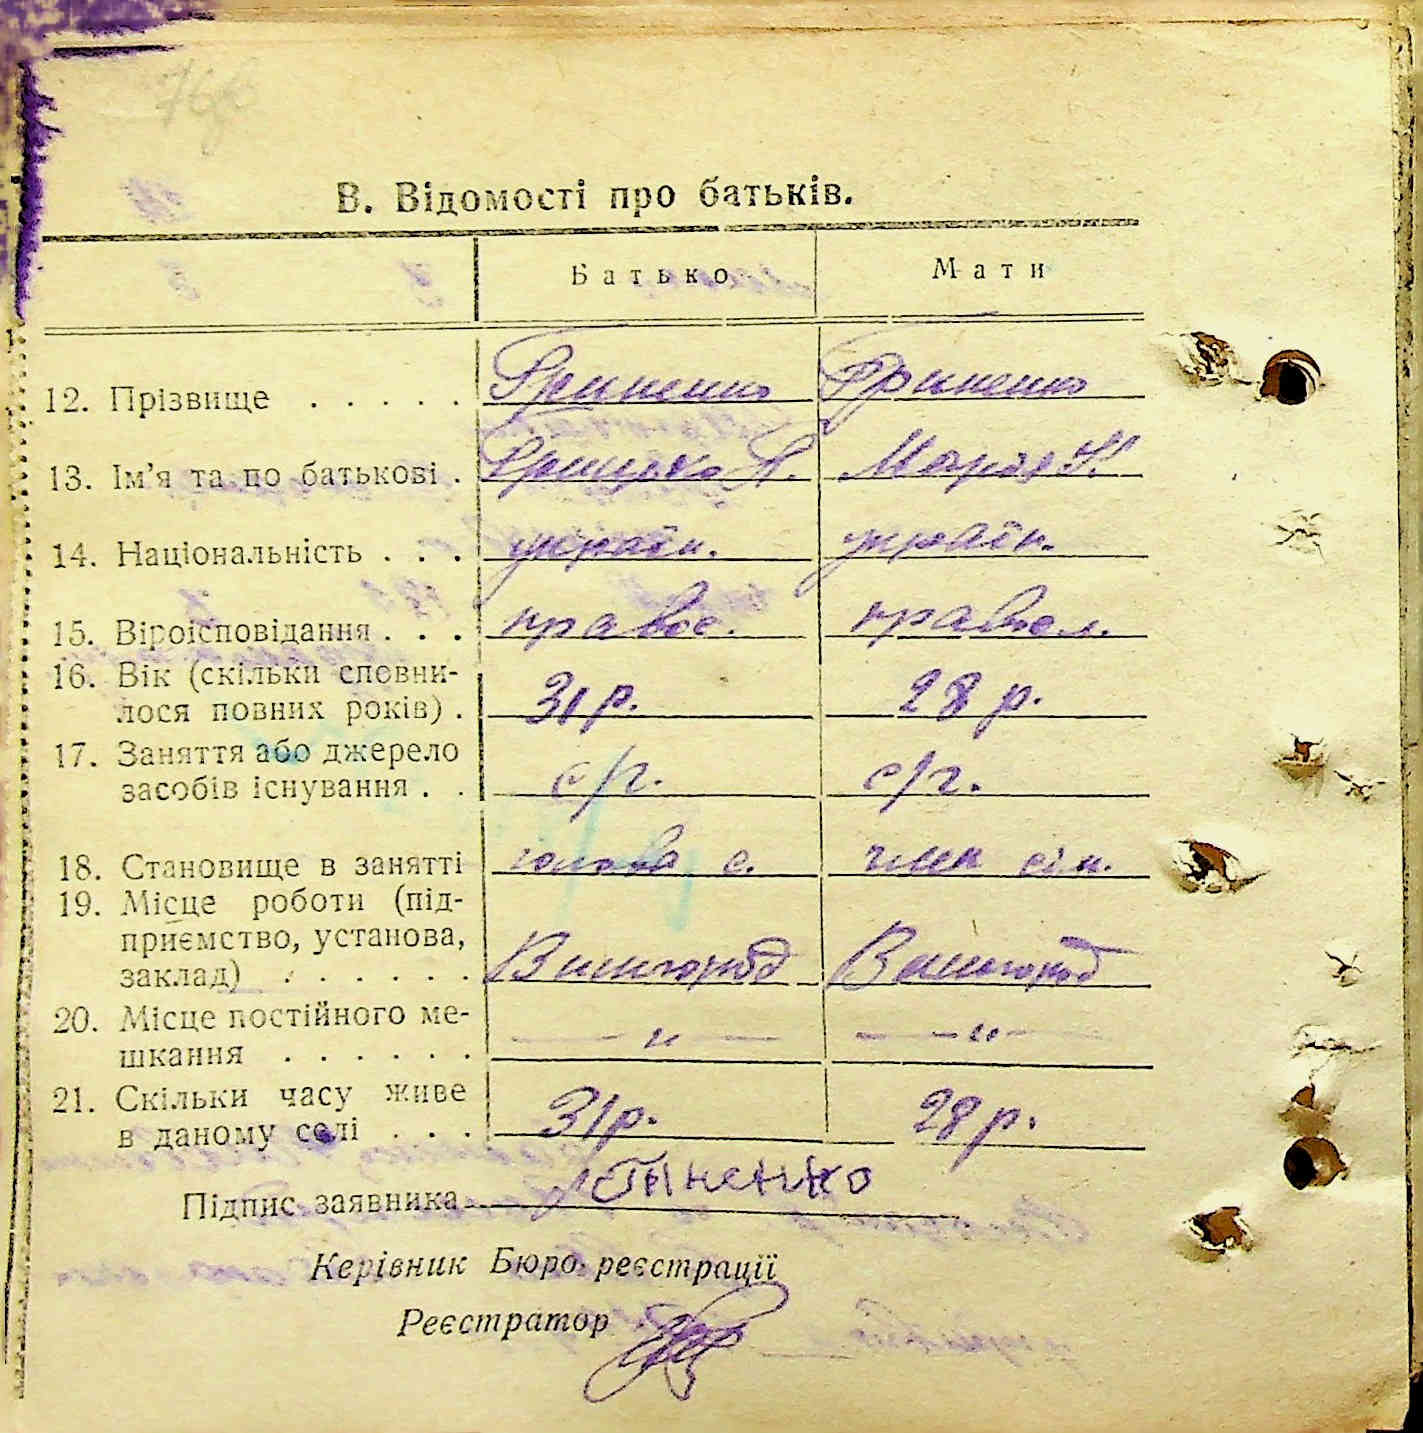 В. Відомості про батьків.
Батько Мати
12. Прізвище . . . . . Гриненко Гриненко
13. Ім'я та по батькові . Грицько П. Марія
14. Національність . . . україн. україн.
15. Віроісповідання . . . правос. правосл.
16. Вік (скільки сповни-
лося повних років) . 31 р. 28 р.
17. Заняття або джерело
засобів існування . . с/г. с/г.
18. Становище в занятті голова с. член сім.
19. Місце роботи (під-
приємство, установа,
заклад) . . . . . . Вишгород Вишгород
20. Місце постійного ме-
шкання . . . . . . — „ — — „ —
21. Скільки часу живе
в даному селі . . . 31 р. 28 р.
Підпис заявника
Керівник Бюро реєстрації
Реєстратор